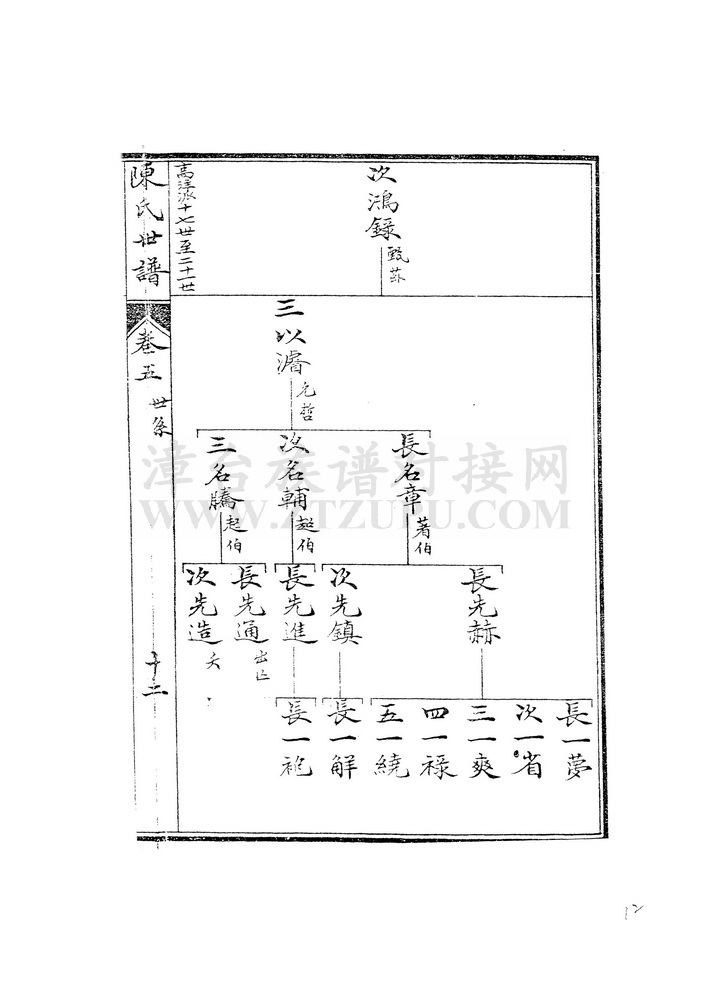 次鴻錄
甄苏
陳氏世譜
卷五
世系
十二
三以濬
允哲
長名章
著伯
次名輔
三名騰
起伯
長先赫
次先鎮
長先進
長先通
次先造
長一夢
次一省
三一爽
四一禄
五一繞
長一解
長一袍
漳台族谱对接网
WWW.ZTZUPU.COM
12